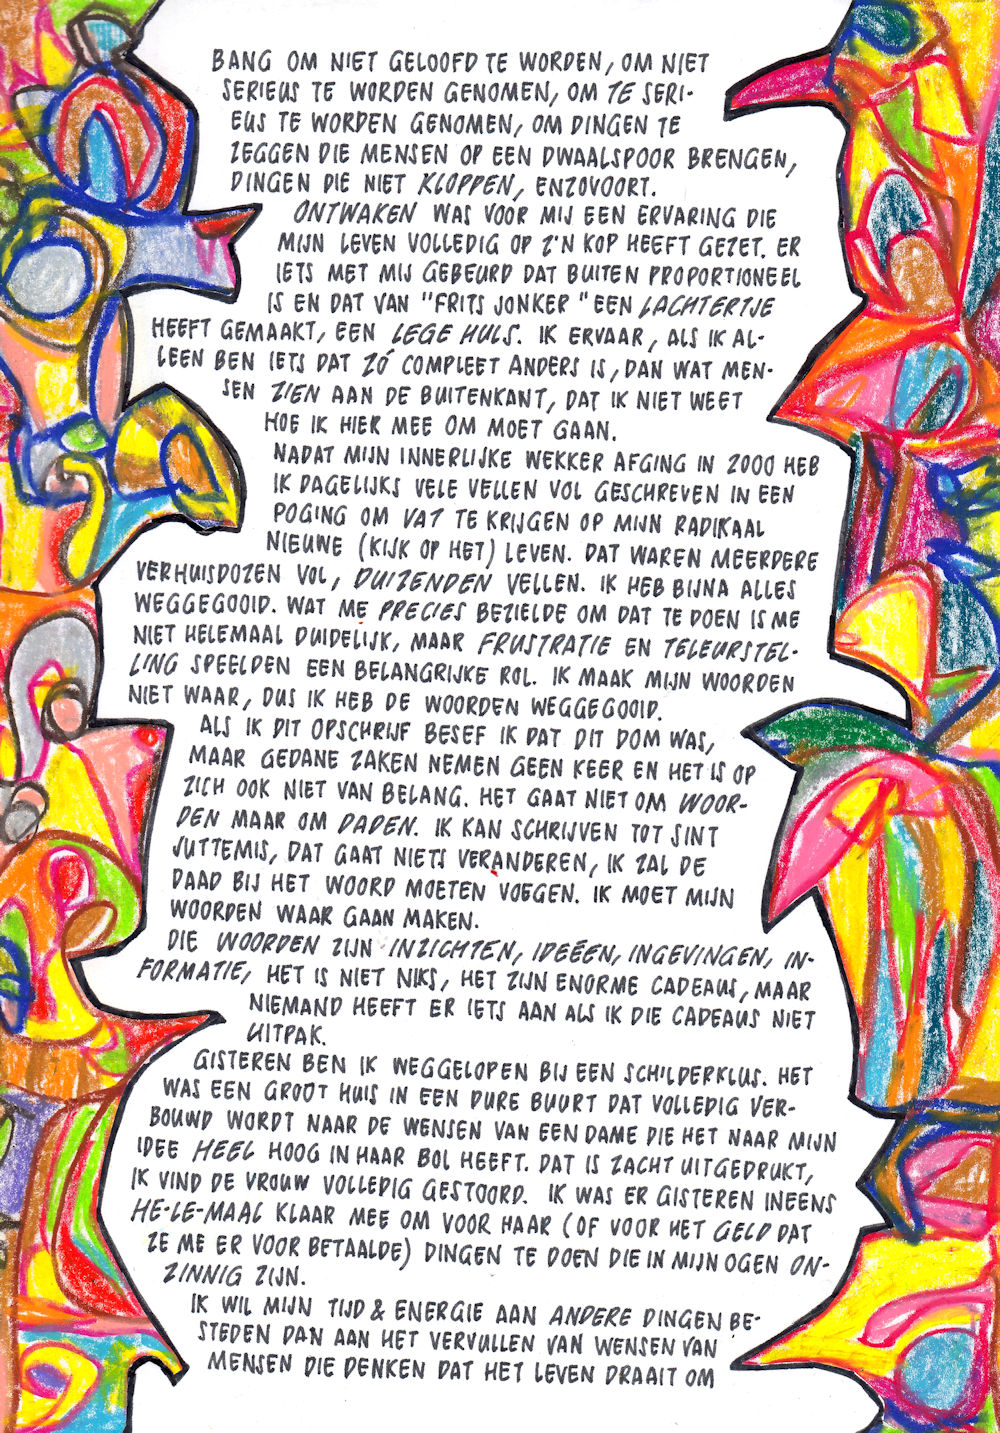 BANG OM NIET GELOOFD TE WORDEN, OM NIET
SERIEUS TE WORDEN GENOMEN, OM TE SERI-
EUS TE WORDEN GENOMEN, OM DINGEN TE
ZEGGEN DIE MENSEN OP EEN DWAALSPOOR BRENGEN,
DINGEN DIE NIET KLOPPEN, ENZOVOORT.
ONTWAKEN WAS VOOR MIJ EEN ERVARING DIE
MIJN LEVEN VOLLEDIG OP Z'N KOP HEEFT GEZET. ER
IETS MET MIJ GEBEURD DAT BUITEN PROPORTIONEEL
IS EN DAT VAN "FRITS JONKER" EEN LACHTERTJE
HEEFT GEMAAKT, EEN LEGE HULS. IK ERVAAR, ALS IK AL-
LEEN BEN IETS DAT ZÓ COMPLEET ANDERS IS, DAN WAT MEN-
SEN ZIEN AAN DE BUITENKANT, DAT IK NIET WEET
HOE IK HIER MEE OM MOET GAAN.
NADAT MIJN INNERLIJKE WEKKER AFGING IN 2000 HEB
IK DAGELIJKS VELE VELLEN VOL GESCHREVEN IN EEN
POGING OM VAT TE KRIJGEN OP MIJN RADIKAAL
NIEUWE (KIJK OP HET) LEVEN. DAT WAREN MEERDERE
VERHUISDOZEN VOL, DUIZENDEN VELLEN. IK HEB BIJNA ALLES
WEGGEGOOID. WAT ME PRECIES BEZIELDE OM DAT TE DOEN IS ME
NIET HELEMAAL DUIDELIJK, MAAR FRUSTRATIE EN TELEURSTEL-
LING SPEELDEN EEN BELANGRIJKE ROL. IK MAAK MIJN WOORDEN
NIET WAAR, DUS IK HEB DE WOORDEN WEGGEGOOID.
ALS IK DIT OPSCHRIJF BESEF IK DAT DIT DOM WAS,
MAAR GEDANE ZAKEN NEMEN GEEN KEER EN HET IS OP
ZICH OOK NIET VAN BELANG. HET GAAT NIET OM WOOR-
DEN MAAR OM DADEN. IK KAN SCHRIJVEN TOT SINT
JUTTEMIS, DAT GAAT NIETS VERANDEREN, IK ZAL DE
DAAD BIJ HET WOORD MOETEN VOEGEN. IK MOET MIJN
WOORDEN WAAR GAAN MAKEN.
DIE WOORDEN ZIJN INZICHTEN, IDEËEN, INGEVINGEN, IN-
FORMATIE, HET IS NIET NIKS, HET ZIJN ENORME CADEAUS, MAAR
NIEMAND HEEFT ER IETS AAN ALS IK DIE CADEAUS NIET
UITPAK.
GISTEREN BEN IK WEGGELOPEN BIJ EEN SCHILDERKLUS. HET
WAS EEN GROOT HUIS IN EEN DURE BUURT DAT VOLLEDIG VER-
BOUWD WORDT NAAR DE WENSEN VAN EEN DAME DIE HET NAAR MIJN
IDEE HEEL HOOG IN HAAR BOL HEEFT. DAT IS ZACHT UITGEDRUKT,
IK VIND DE VROUW VOLLEDIG GESTOORD. IK WAS ER GISTEREN INEENS
HE-LE-MAAL KLAAR MEE OM VOOR HAAR (OF VOOR HET GELD DAT
ZE ME ER VOOR BETAALDE) DINGEN TE DOEN DIE IN MIJN OGEN ON-
ZINNIG ZIJN.
IK WIL MIJN TIJD & ENERGIE AAN ANDERE DINGEN BE-
STEDEN DAN AAN HET VERVULLEN VAN WENSEN VAN
MENSEN DIE DENKEN DAT HET LEVEN DRAAIT OM